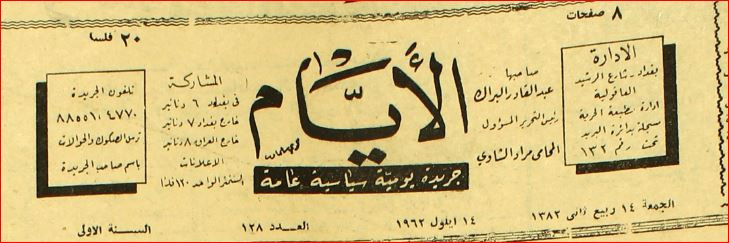 ٨ صفحات
٢٠ فلسا
الادارة
بغداد. شارع الرشيد
العاقولية
ادارة مطبعة الحرية
مسجلة بدائرة البريد
تحت رقم ١٣٢
صاحبها
عبد القادر البراك
رئيس التحرير المسؤول
المحامي مراد الشاوي
الأيّام
جريدة يوميّة سياسية عامة
المشاركة
في بغداد ٦ دنانير
خارج بغداد ٧ دنانير
خارج العراق ٨ دنانير
الاعلانات
السنتمتر الواحد ١٢٠ فلسا
تلفون الجريدة
٨٨٥٥١٠٤٧٧٠
ترسل الصكوك والحوالات
باسم صاحب الجريدة
الجمعة ١٤ ربيع ثاني ١٣٨٢
١٤ ايلول ١٩٦٢
العــدد ١٢٨
الســنة الاولى